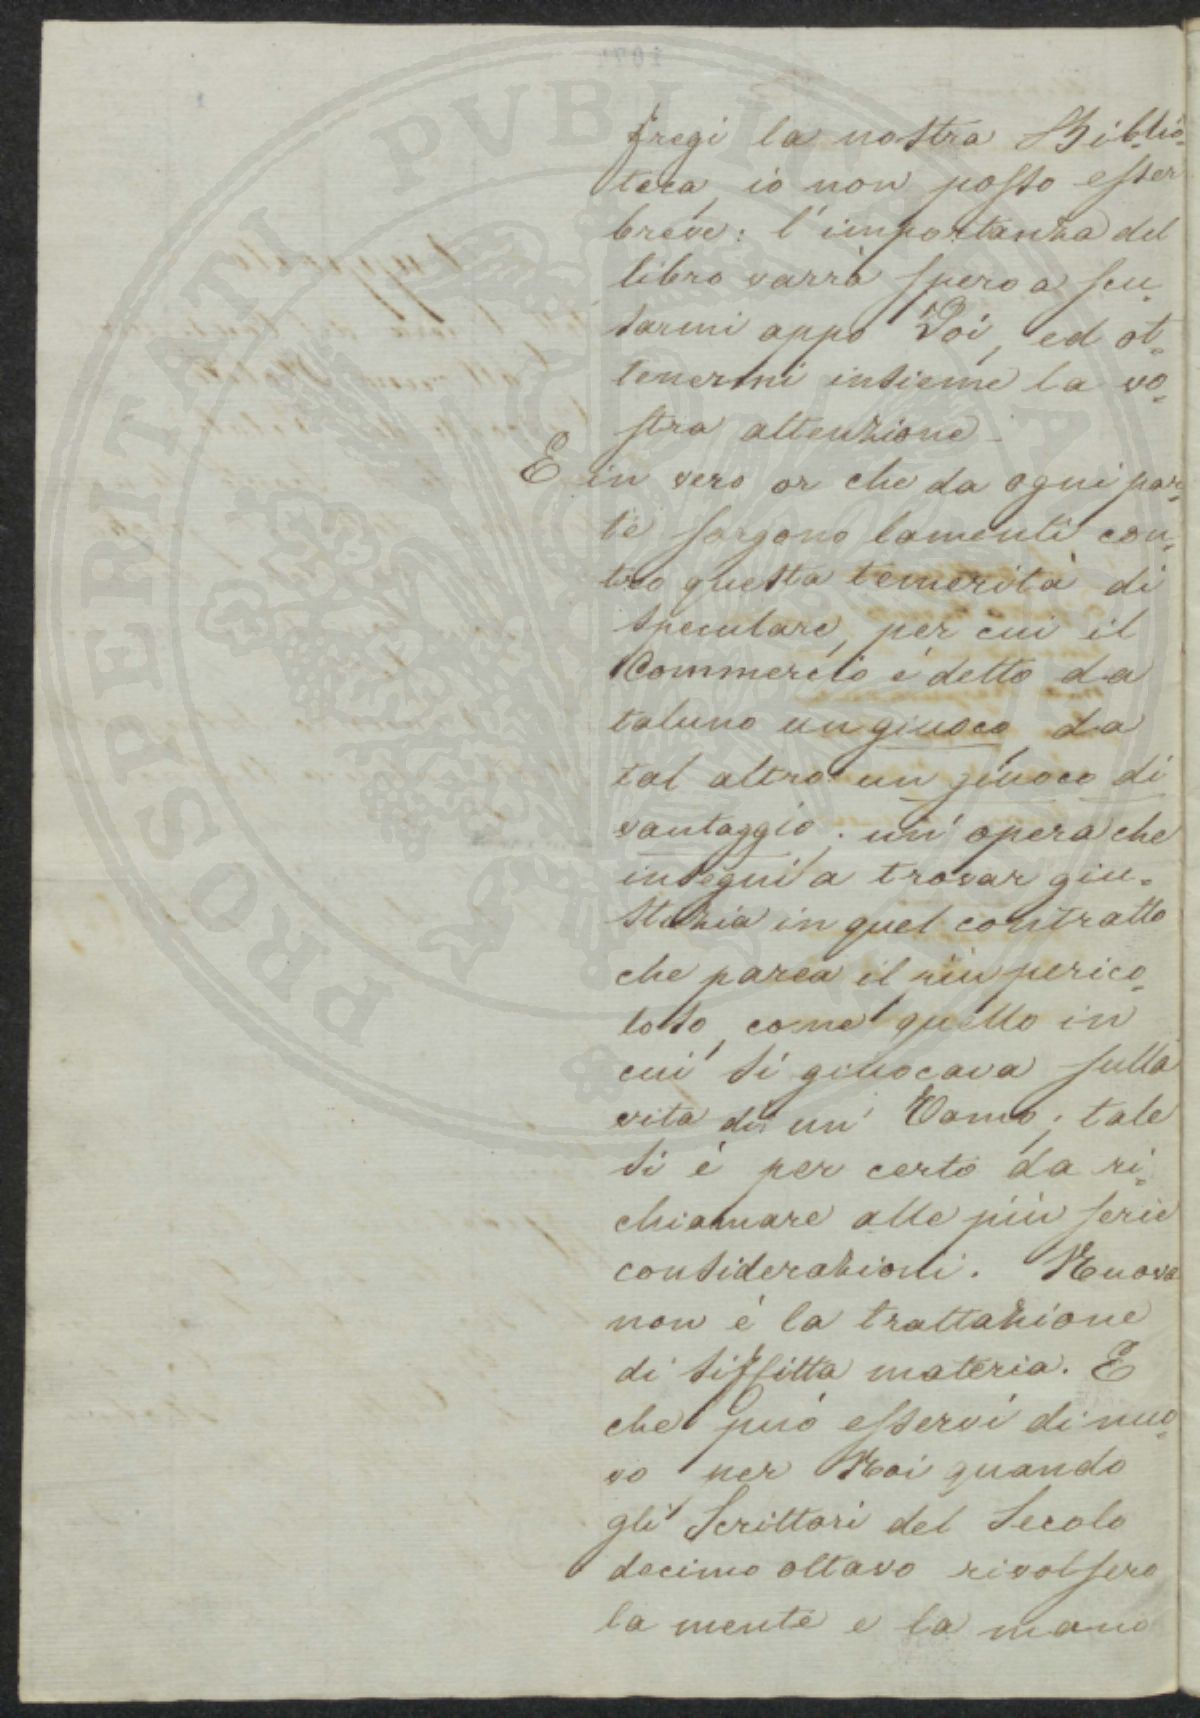 fregi la nostra Biblio-
teca, io non posso esser
breve: l'importanza del
libro varrà spero a scu-
sarmi appo Voi, ed ot-
tenermi insieme la vo-
stra attenzione -
E in vero or che da ogni par-
te sorgono lamenti con-
tro questa temerità di
speculare, per cui il
Commercio è detto da
taluno un giuoco, da
tal altro un giuoco di
vantaggio; un' opera che
insegni a trovar giu-
stizia in quel contratto
che parea il più perico-
loso, come quello in
cui si giuocava sulla
vita di un' Uomo; tale
si è per certo da ri-
chiamare alle più serie
considerazioni. Nuova
non è la trattazione
di siffitta materia. E
che può esservi di nuo-
vo per Noi quando
gli Scrittori del Secolo
decimo ottavo rivolsero
la mente e la mano
PROSPERITATI PVBLICAE